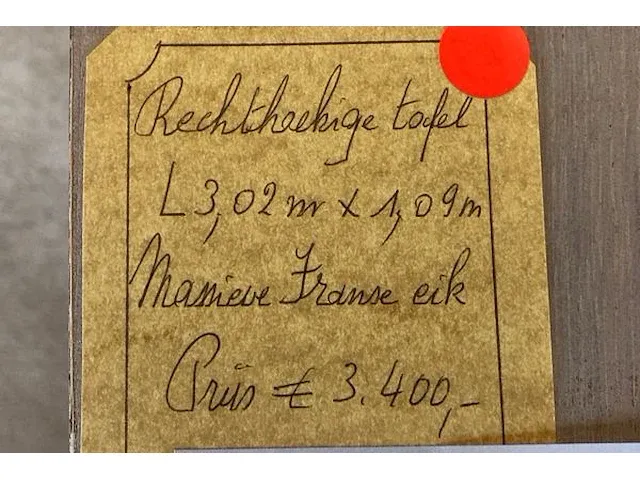 Rechthoekige tafel
L 3,02 m x 1,09 m
Massieve Franse eik
Prijs € 3.400,-